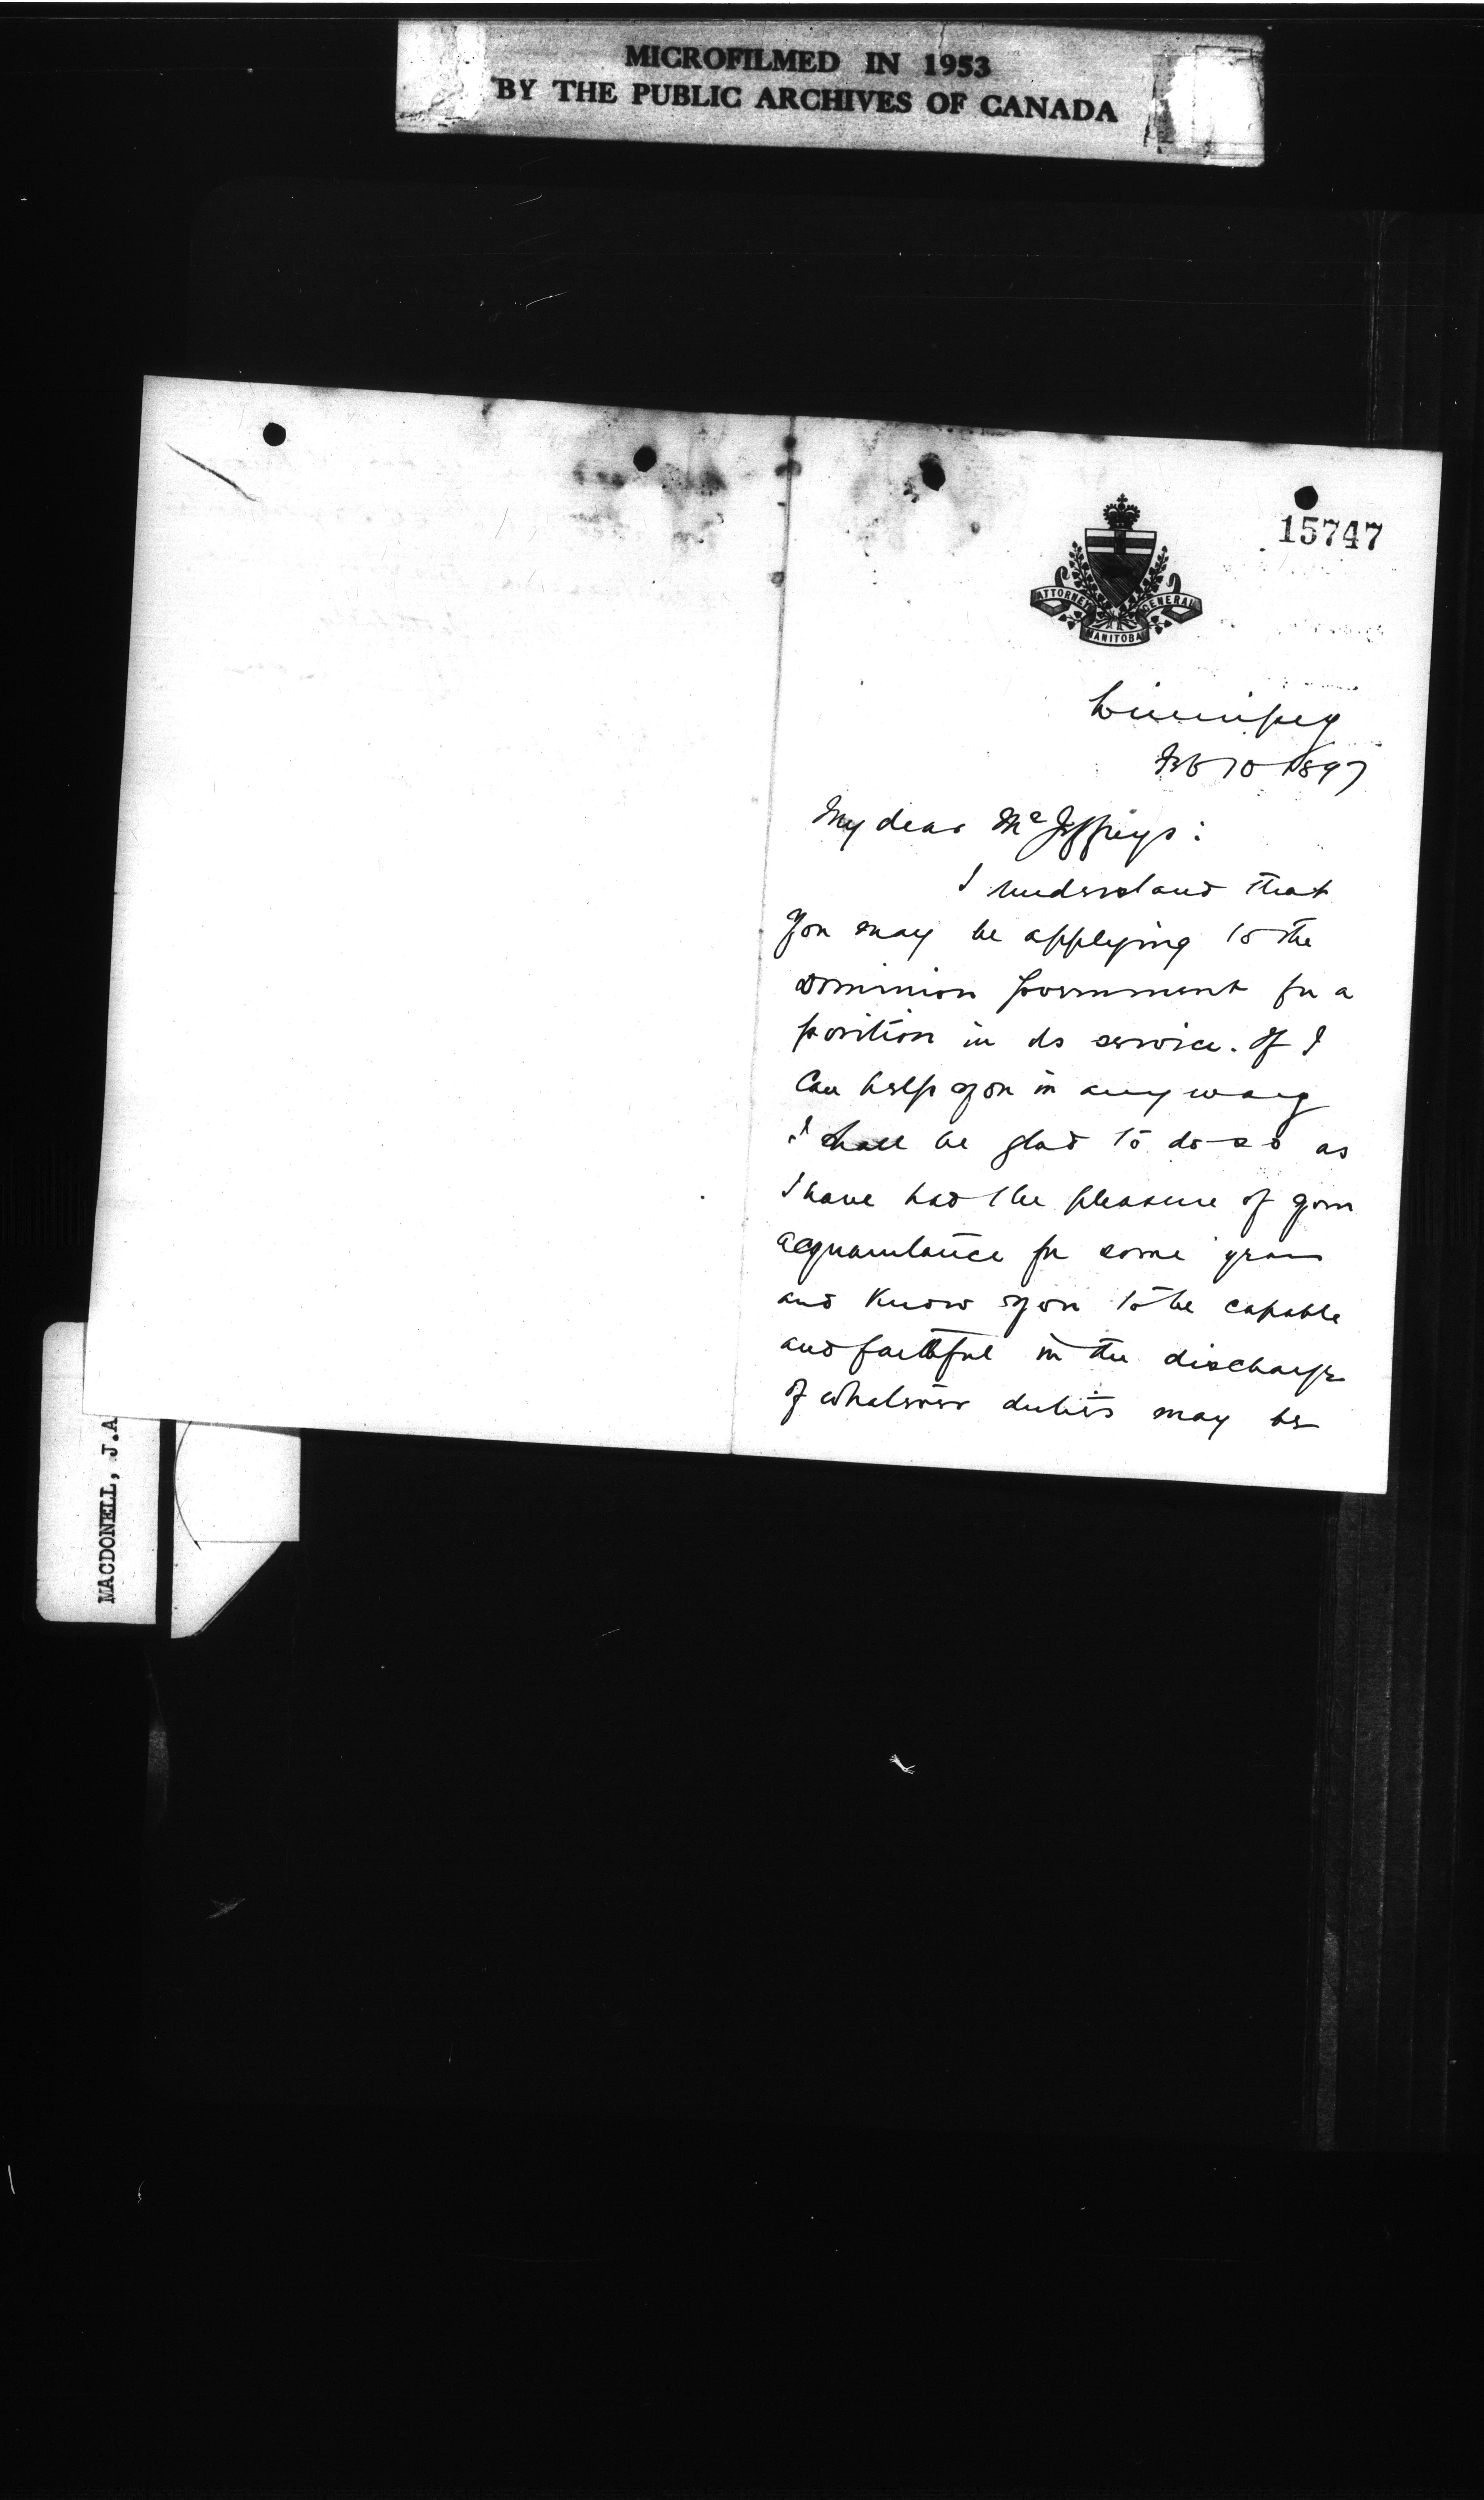 MICROFILMED IN 1953
BY THE PUBLIC ARCHIVES OF CANADA
15747
ATTORNEY GENERAL
MANITOBA
Winnipeg
Feb 10 1897
My dear Mr Jeffreys:
I understand that
you may be applying to the
Dominion Government for a
position in its service. If I
can help you in any way
I shall be glad to do so as
I have had the pleasure of your
acquaintance for some years
and know you to be capable
and faithful in the discharge
of whatever duties may be
MACDONELL, J.A